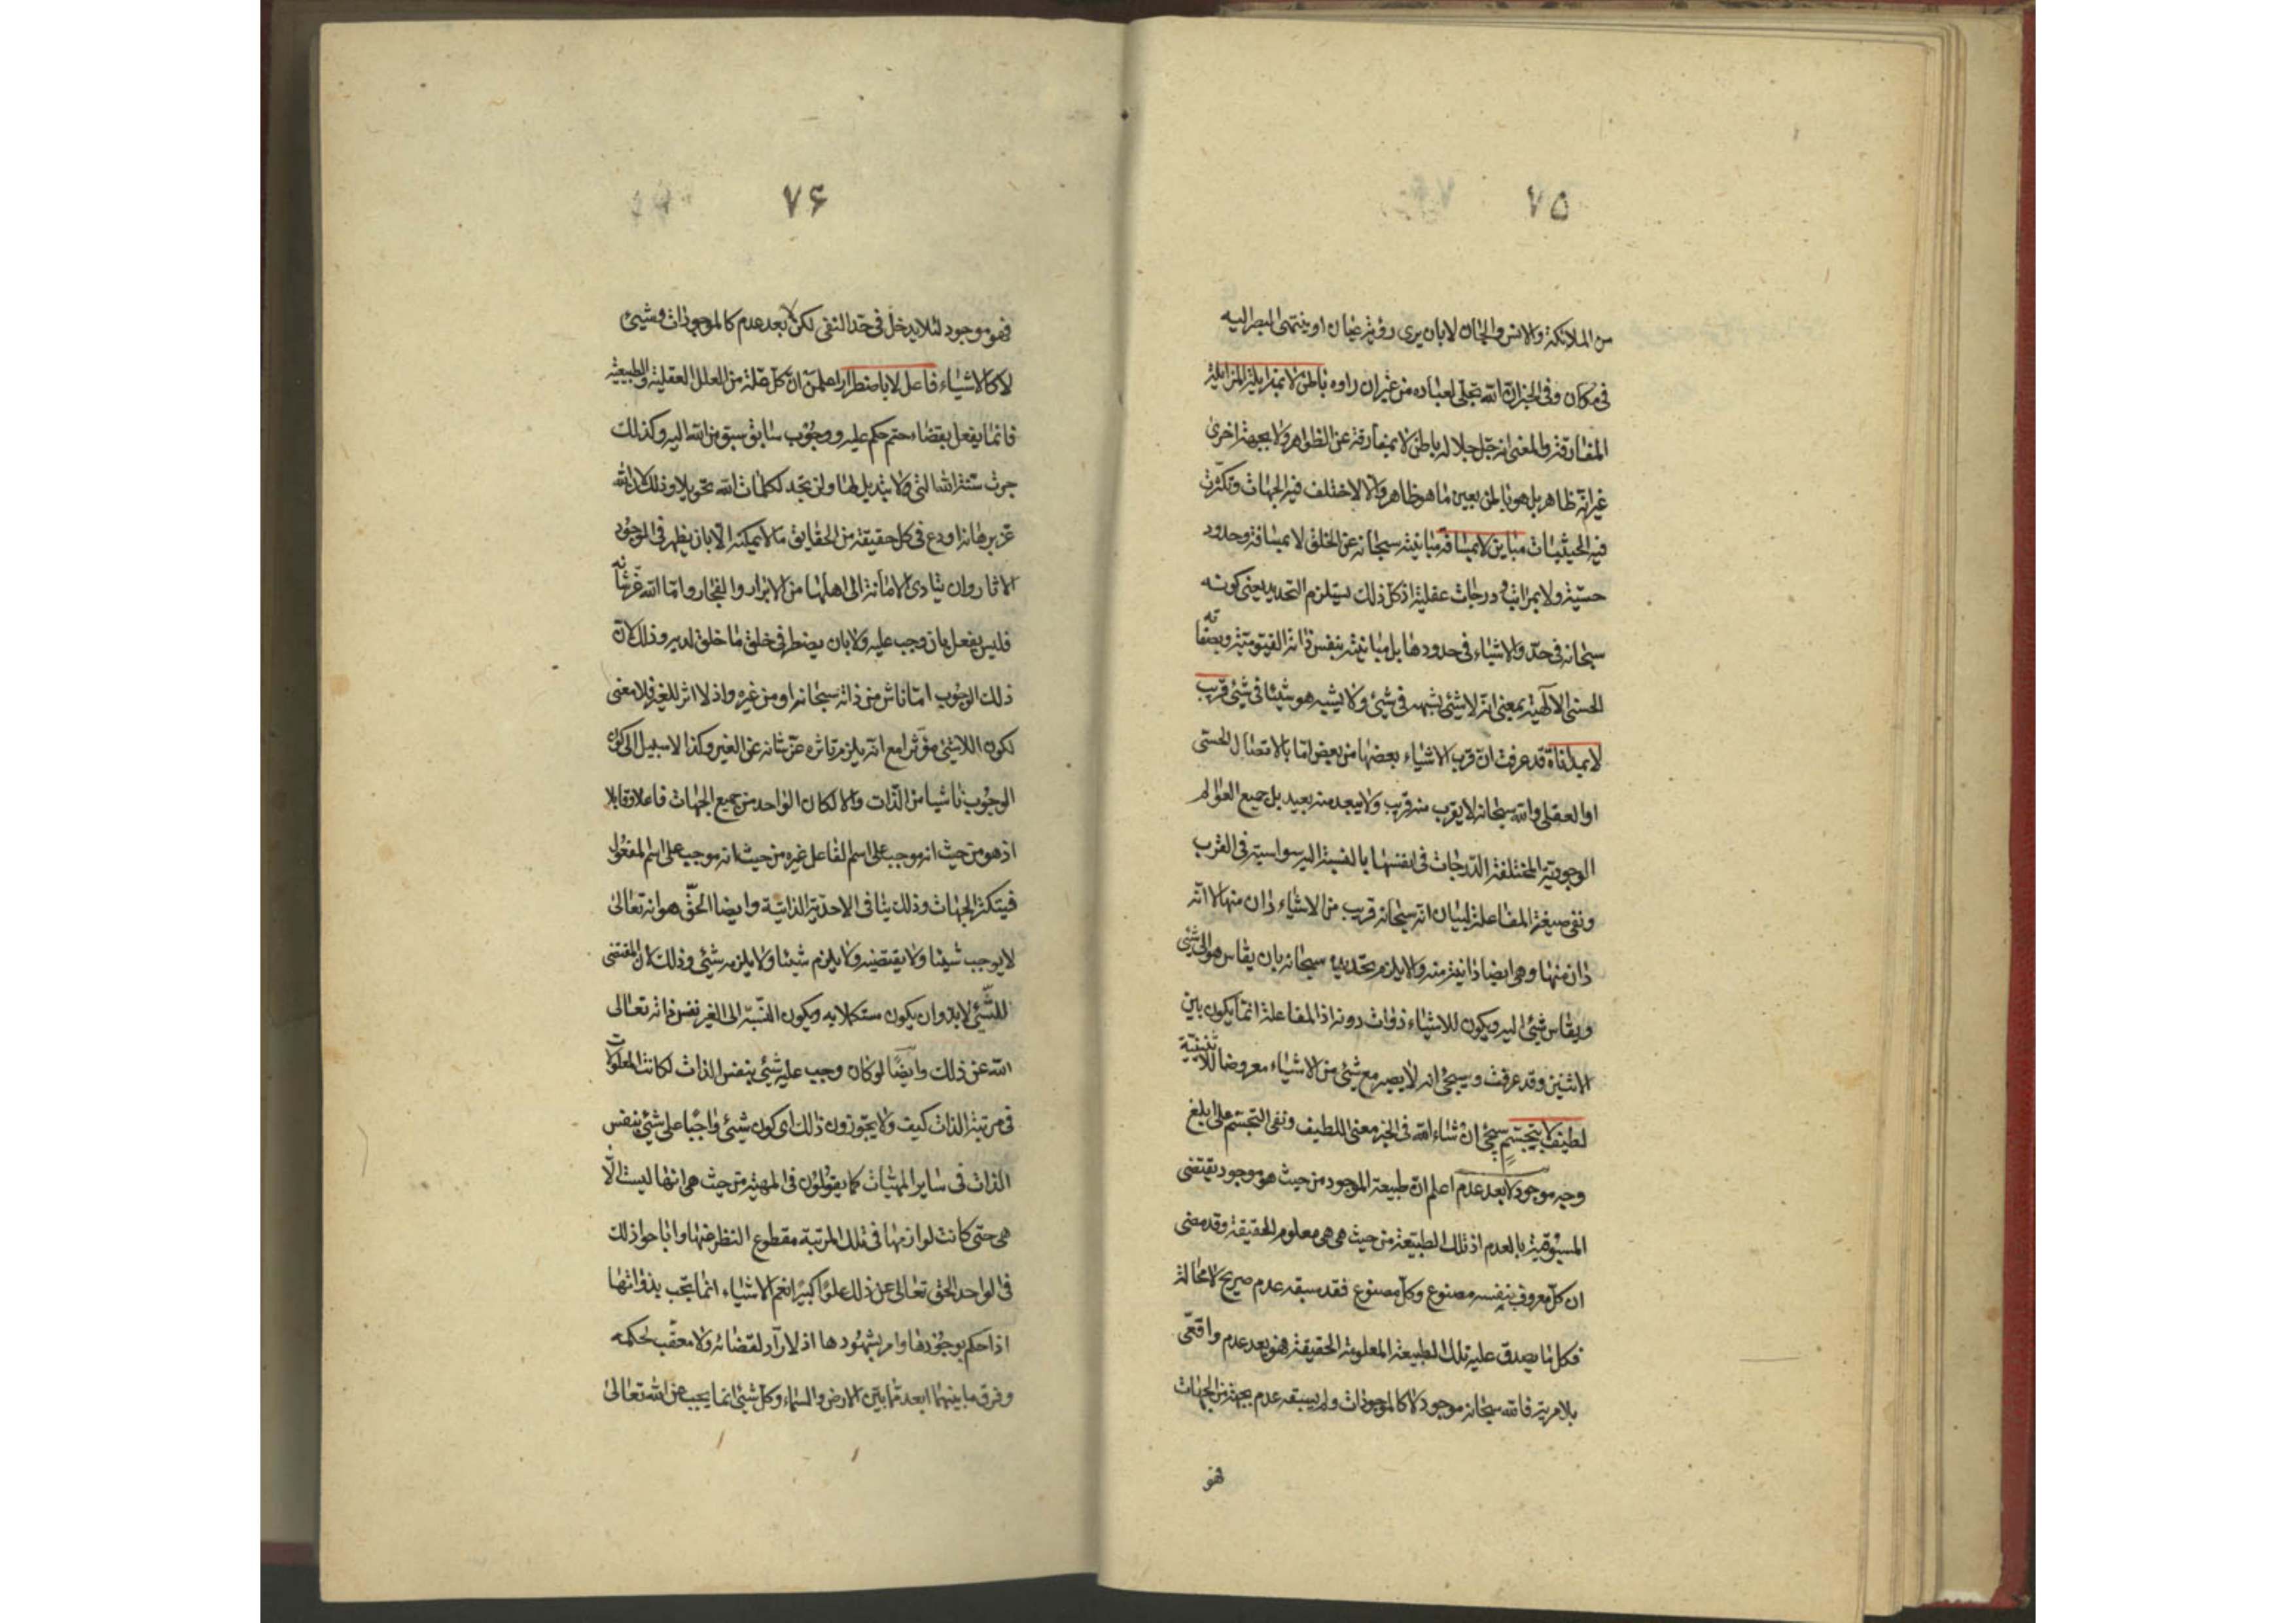 ٧٥
من الملائكة والانس والجان لا بان يرى رؤية عيان او ينتهى البصر اليه
فى مكان وفى الخبر ان الله تجلى لعباده من غير ان راوه باطن لا بمزايلة المزايلة
المفارقة والمعنى انه جل جلاله باطن لا بمفارقة عن الظواهر ولا بجهة اخرى
غير انه ظاهر بل هو باطن بعين ما هو ظاهر والا لاختلف فيه الجهات وتكثرت
فيه الحيثيات مباين لا بمسافة مباينته سبحانه عن الخلق لا بمسافة وحدود
حسية ولا بمراتب ودرجات عقلية اذ كل ذلك يستلزم التحديد يعنى كونه
سبحانه فى حد والاشياء فى حدودها بل مباينته بنفس ذاته القيومية وبصفاته
الحسنى الالهية بمعنى انه لا شئ يشبهه فى شئ ولا يشبه هو شيئا فى شئ قريب
لا بمداناة قد عرفت ان قرب الاشياء بعضها من بعض اما بالاتصال الحسى
او العقلى والله سبحانه لا يقرب منه قريب ولا يبعد منه بعيد بل جميع العوالم
الوجودية المختلفة الدرجات فى انفسها بالنسبة اليه سواسية فى القرب
ونفى صيغة المفاعلة لبيان انه سبحانه قريب من الاشياء دان منها لا انه
دان منها وهى ايضا دانية منه والا يلزم تحديده سبحانه بان يقاس هو الى شئ
ويقاس شئ اليه ويكون للاشياء ذوات دونه اذ المفاعلة انما يكون بين
الاثنين وقد عرفت وسيجئ انه لا يصير مع شئ من الاشياء معروضا للاثنينية
لطيف لا بتجسم سيجئ ان شاء الله فى الخبر معنى اللطيف ونفى التجسم على ابلغ
وجه موجود لا بعد عدم اعلم ان طبيعة الموجود من حيث هو موجود يقتضى
المسبوقية بالعدم اذ تلك الطبيعة من حيث هى هى معلوم الحقيقة وقد مضى
ان كل معروف بنفسه مصنوع وكل مصنوع فقد سبقه عدم صريح لا محالة
فكل ما يصدق عليه تلك الطبيعة المعلومة الحقيقة فهو بعد عدم واقعى
بلا مرية فالله سبحانه موجود لا كالموجودات ولم يسبقه عدم بجهة من الجهات
فهو
٧۶
فهو موجود لئلا يدخل فى حد النفى لكن لا بعد عدم كالموجودات وشئ
لا كالاشياء فاعل لا باضطرار اعلمن ان كل علة من العلل العقلية والطبيعية
فانما يفعل بقضاء حتم حكم عليه ووجوب سابق سبق من الله اليه وكذلك
جرت سنة الله التى ولا تبديل لها ولن تجد لكلمات الله تحويلا وذلك لان الله
عز برهانه اودع فى كل حقيقة من الحقايق ما لا يمكنه الا بان يظهر فى الوجود
الاثار وان يتادى الامانة الى اهلها من الابرار والفجار واما الله عز شانه
فليس يفعل بان وجب عليه ولا بان يضطر فى خلق ما خلق لديه وذلك لان
ذلك الوجوب اما ناش من ذاته سبحانه او من غيره واذ لا اثر للغير فلا معنى
لكون اللاشئ مؤثرا مع انه يلزم تاثره عز شانه عن الغير وكذا لا سبيل الى كون
الوجوب ناشيا من الذات والا لكان الواحد من جميع الجهات فاعلا وقابلا
اذ هو من حيث انه موجب على اسم الفاعل غيره من حيث انه موجب على اسم المفعول
فيتكثر الجهات وذلك ينافى الاحدية الذاتية وايضا الحق هو انه تعالى
لا يوجب شيئا ولا يقتضيه ولا يلزم شيئا ولا يلزمه شئ وذلك لان المقتضى
للشئ لابد وان يكون مستكملا به ويكون النسبة الى الغير نفس ذاته تعالى
الله عن ذلك وايضا لو كان وجب عليه شئ بنفس الذات لكانت المعلولات
فى مرتبة الذات كيف ولا يجوزون ذلك اى كون شئ واجبا على شئ بنفس
الذات فى ساير المهيات كما يقولون فى المهية من حيث هى انها ليست الا
هى حتى كانت لوازمها فى تلك المرتبة مقطوع النظر عنها واباحوا ذلك
فى الواحد الحق تعالى عن ذلك علوا كبيرا نعم الاشياء انما يجب بذواتها
اذا حكم بوجودها وامر بشهودها اذ لا راد لقضائه ولا معقب لحكمه
وفرق ما بينهما ابعد مما بين الارض والسماء وكل شئ انما يجب عن الله تعالى